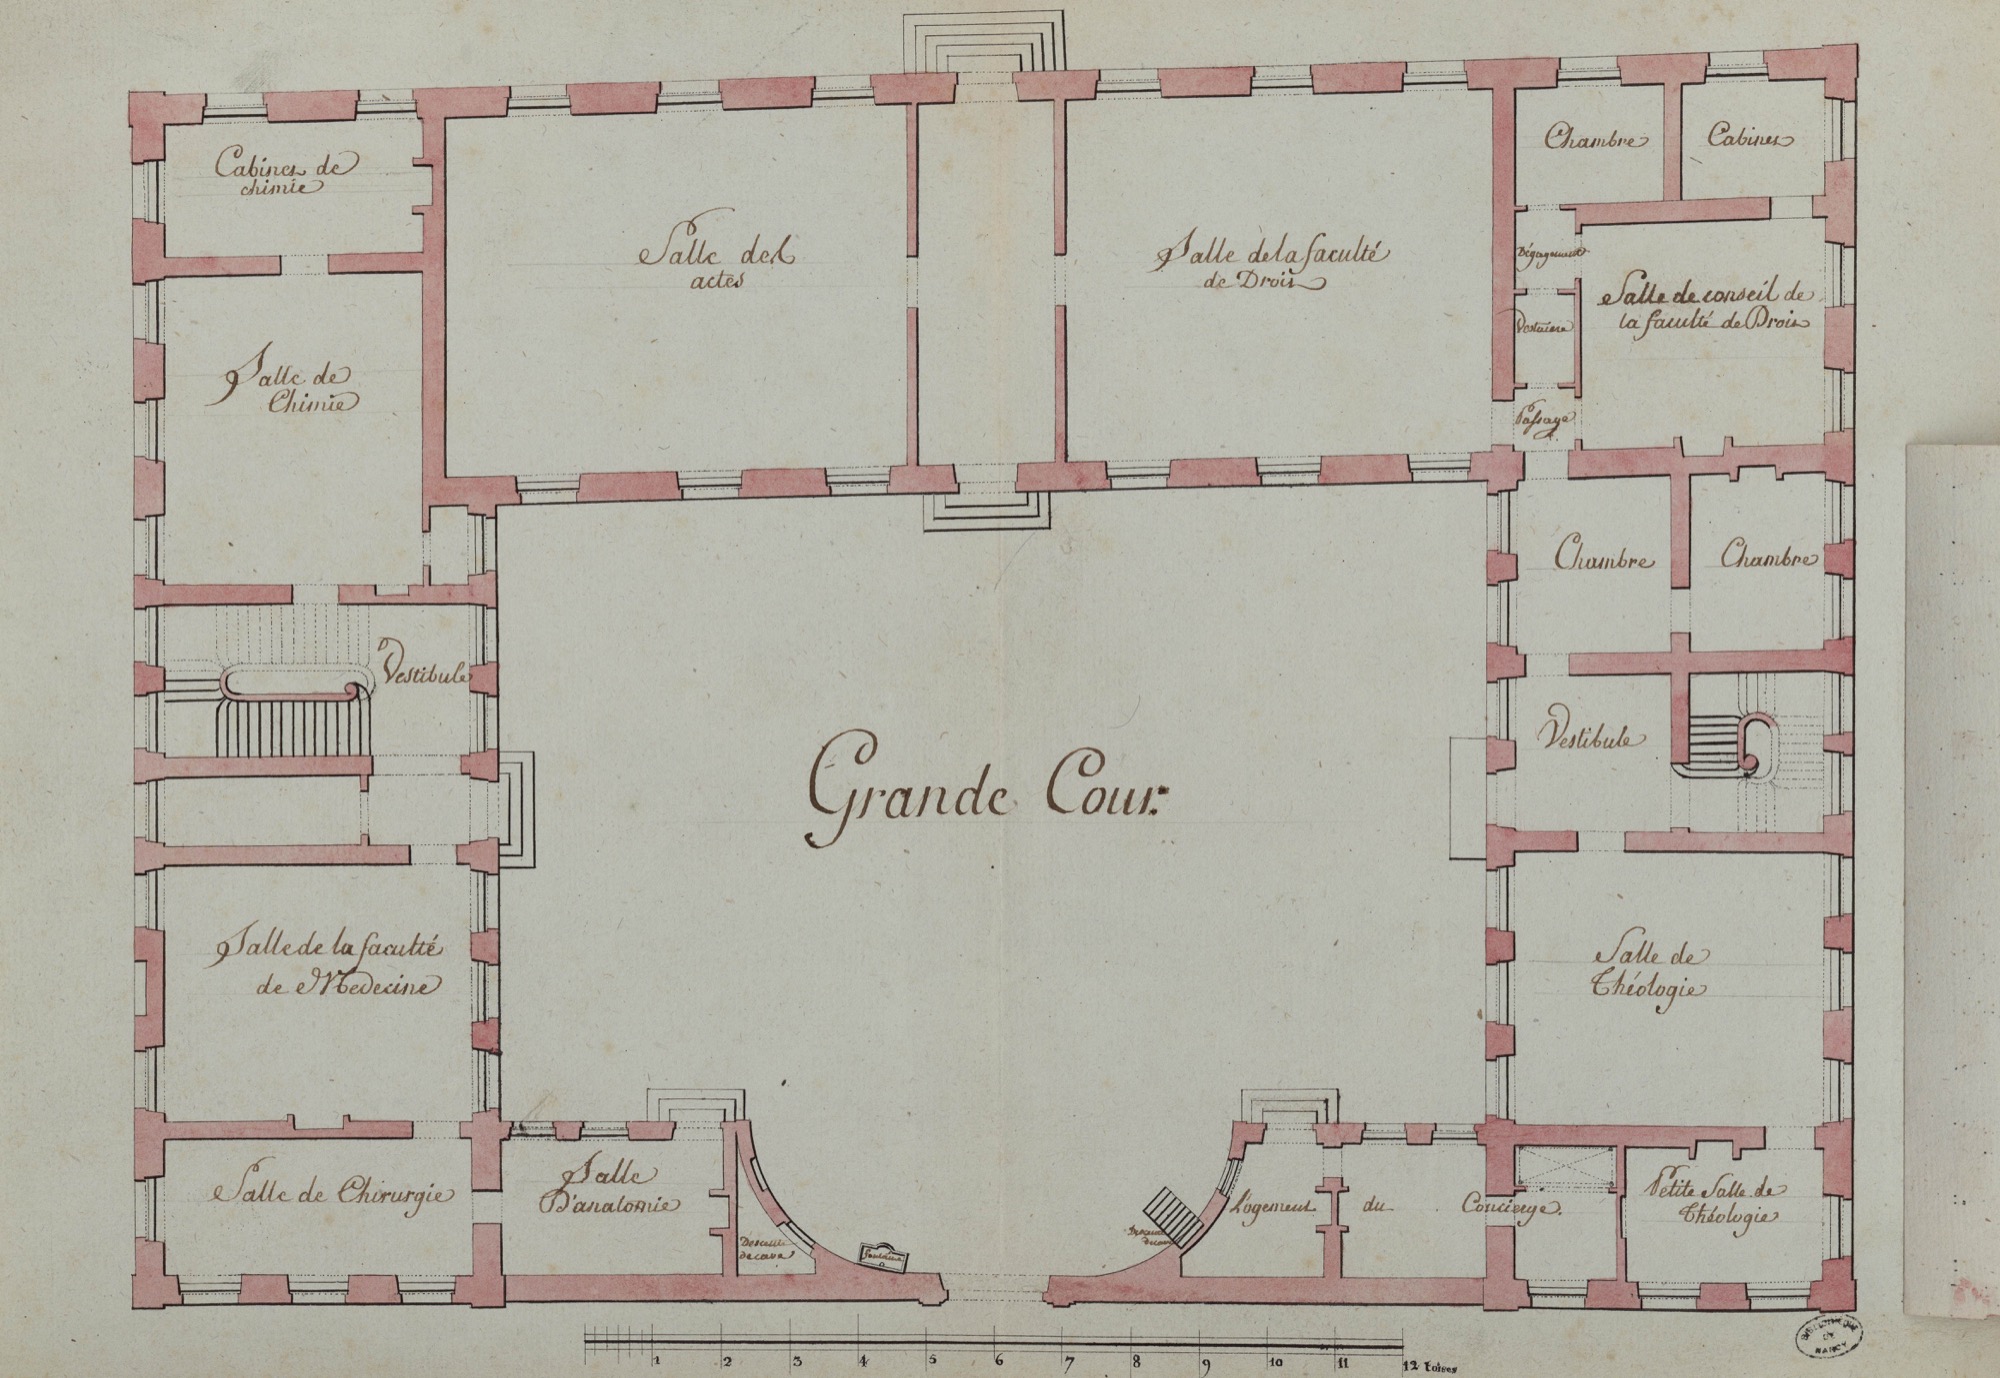 Cabinet de
chimie
Salle des
actes
Salle de la faculté
de Droit
Chambre
Cabinet
Dégagement
Salle de conseil de
la faculté de Droit
Passage
Salle de
Chimie
Chambre
Chambre
Vestibule
Vestibule
Grande Cour.
Salle de la faculté
de Medecine
Salle de
Théologie
Salle de Chirurgie
Salle
D'anatomie
Descente
de cave
Fontaine
Descente
de cave
Logement du Concierge.
Petite Salle de
théologie
1 2 3 4 5 6 7 8 9 10 11 12 toises
BIBLIOTHEQUE
DE
NANCY